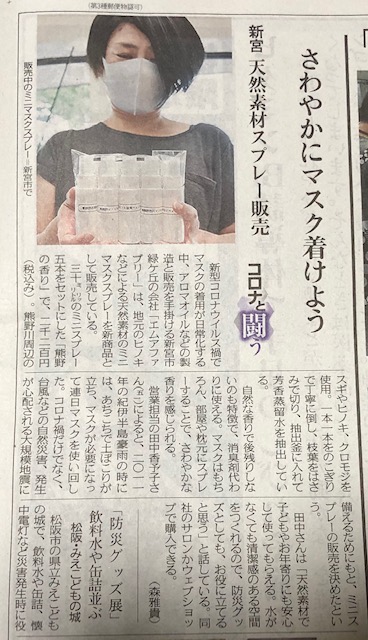 (第3種郵便物認可)
さわやかにマスク着けよう
新宮 天然素材スプレー販売
コロナと闘う
販売中のミニマスクスプレー=新宮市で
新型コロナウイルス禍で
マスクの着用が日常化する
中、アロマオイルなどの製
造と販売を手掛ける新宮市
緑ケ丘の会社「エムアファ
ブリー」は、地元のヒノキ
などによる天然素材のミニ
マスクスプレーを新商品と
して販売している。
三十㍉㍑のミニスプレー
五本をセットにした「熊野
の香り」で、二千二百円
(税込み)。熊野川周辺の
スギやヒノキ、クロモジを
使用。一本一本をのこぎり
で丁寧に倒し、枝葉をはさ
みで切り、抽出釜に入れて
芳香蒸留水を抽出してい
る。
自然な香りで後残りしな
いのも特徴で、消臭剤代わ
りに使える。マスクはもち
ろん、部屋や枕元にスプレ
ーすることで、さわやかな
香りを感じられる。
営業担当の田中香予子さ
ん によると、二〇一一
年の紀伊半島豪雨の時に
は、あちこちで土ぼこりが
立ち、マスクが必要になっ
て連日マスクを使い回し
た。コロナ禍だけでなく、
台風などの自然災害、発生
が心配される大規模地震に
備えるためにもと、ミニス
プレーの販売を決めたとい
う。
田中さんは「天然素材で
子どもやお年寄りにも安心
して使ってもらえる。水が
なくても清潔感のある空間
をつくれるので、防災グッ
ズとしても、お役に立てる
と思う」と話している。同
社のサロンかウェブショッ
プで購入できる。
(森雅貴)
「防災グッズ展」
飲料水や缶詰並ぶ
松阪・みえこどもの城
松阪市の県立みえこども
の城で、飲料水や缶詰、懐
中電灯など災害発生時に役